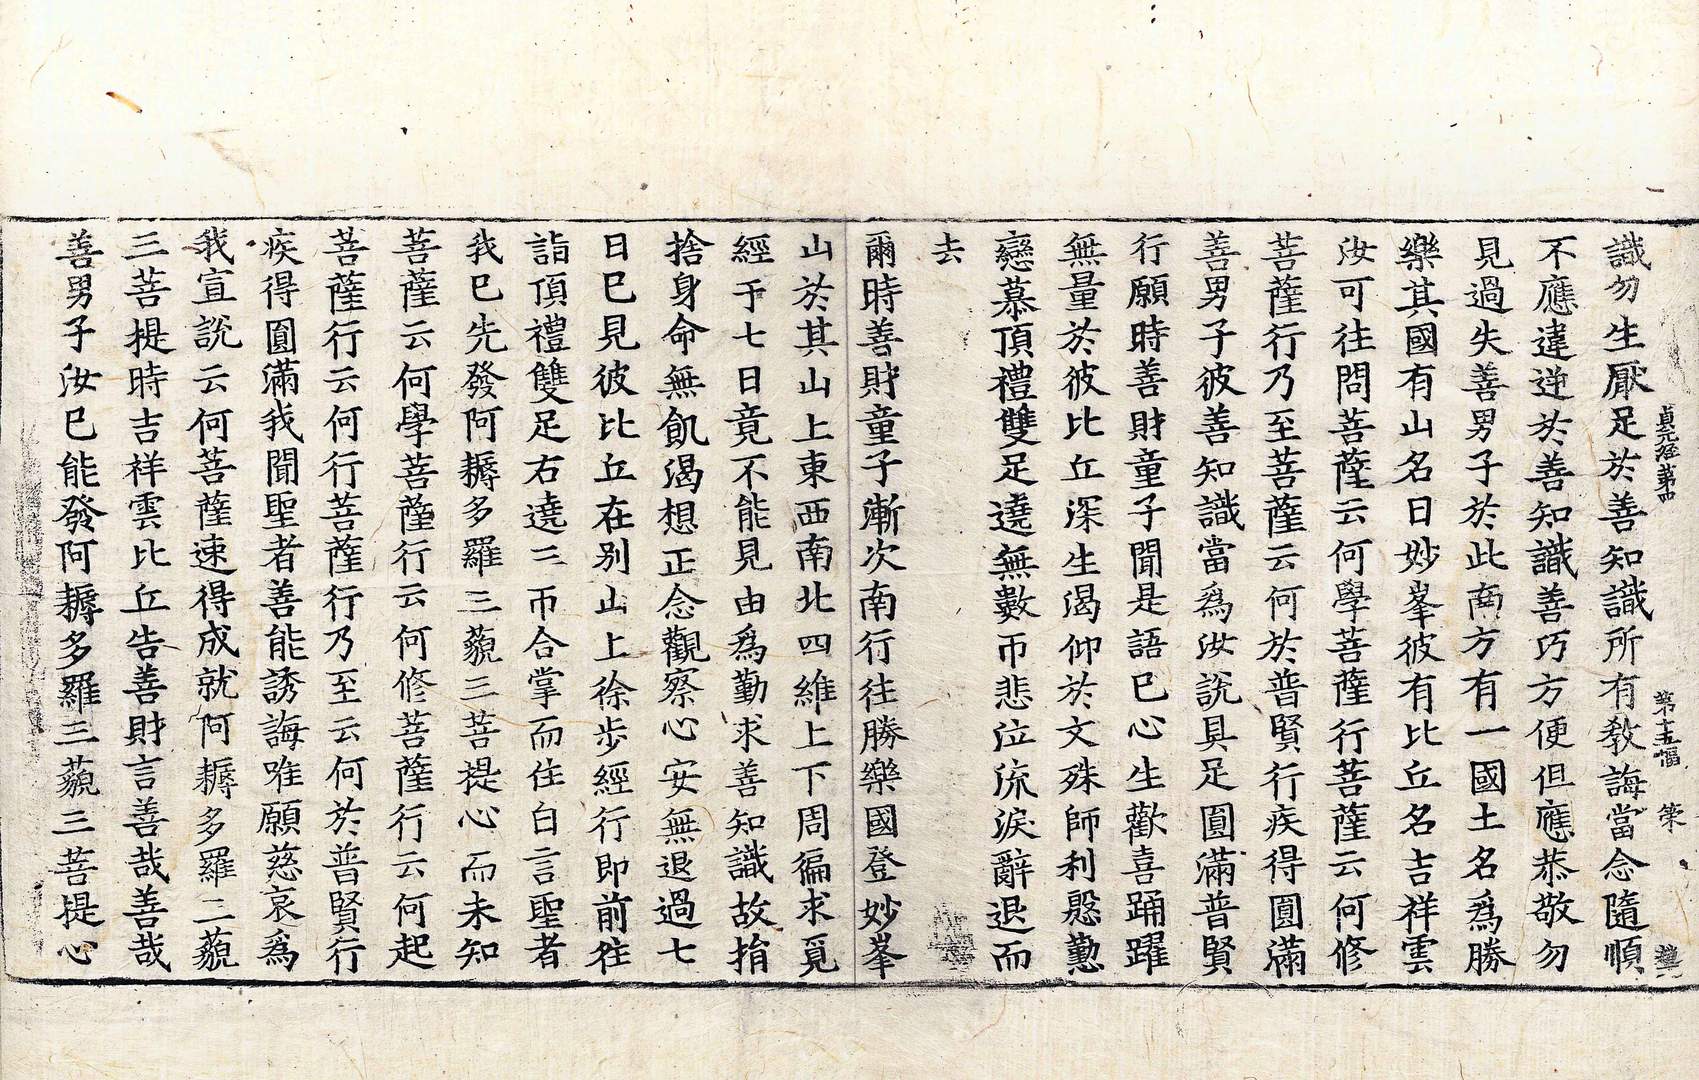 識勿生厭足於善知識所有教誨當念隨順
貞元經第四 第十五幅 榮
不應違逆於善知識善巧方便但應恭敬勿
見過失善男子於此南方有一國土名爲勝
樂其國有山名曰妙峯彼有比丘名吉祥雲
汝可往問菩薩云何學菩薩行菩薩云何修
菩薩行乃至菩薩云何於普賢行疾得圓滿
善男子彼善知識當爲汝說具足圓滿普賢
行願時善財童子聞是語已心生歡喜踊躍
無量於彼比丘深生渴仰於文殊師利慇懃
戀慕頂禮雙足遶無數帀悲泣流淚辭退而
去
爾時善財童子漸次南行往勝樂國登妙峯
山於其山上東西南北四維上下周徧求覓
經于七日竟不能見由爲勤求善知識故捐
捨身命無飢渴想正念觀察心安無退過七
日已見彼比丘在別山上徐步經行即前往
詣頂禮雙足右遶三帀合掌而住白言聖者
我已先發阿耨多羅三藐三菩提心而未知
菩薩云何學菩薩行云何修菩薩行云何起
菩薩行云何行菩薩行乃至云何於普賢行
疾得圓滿我聞聖者善能誘誨唯願慈哀爲
我宣說云何菩薩速得成就阿耨多羅三藐
三菩提時吉祥雲比丘告善財言善哉善哉
善男子汝已能發阿耨多羅三藐三菩提心